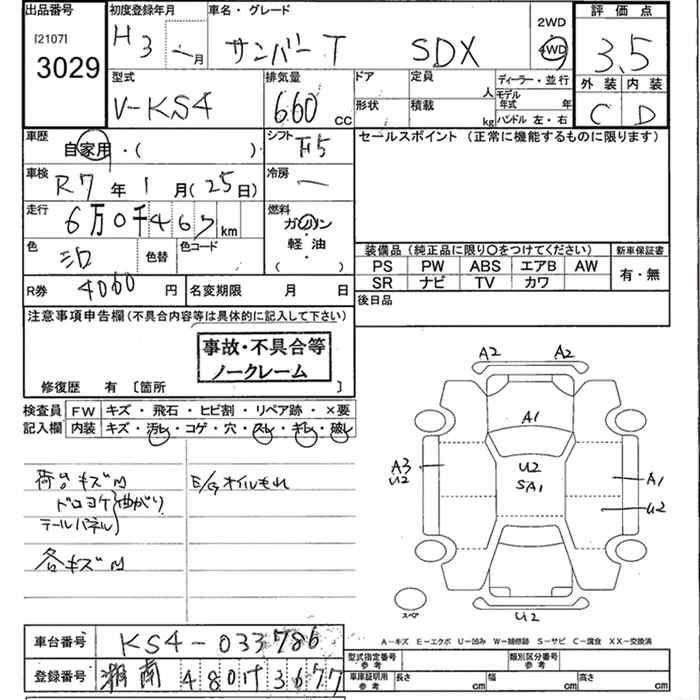 出品番号 初度登録年月 車名・グレード 2WD 評価点
[2107] H3 年 月 サンバーT SDX 4WD 3.5
3029
型式 排気量 ドア 定員 人 ディーラー・並行 外装 内装
V-KS4 660 CC 形状 積載 kg モデル年式 年 C D
ハンドル 左・右
車歴 自家用・( ) シフト F5 セールスポイント (正常に機能するものに限ります)
車検 R7年1月(25日) 冷房 ー
走行 6万0千467km 燃料 ガソリン・軽油 ( )
色 シロ 色替 色コード
装備品 (純正品に限り○をつけてください) 新車保証書
PS PW ABS エアB AW 有・無
SR ナビ TV カワ
R券 4060 円 名変期限 月 日 後日品
注意事項申告欄(不具合内容等は具体的に記入して下さい)
事故・不具合等
ノークレーム
修復歴 有 〔箇所 〕
検査員 FW キズ・飛石・ヒビ割・リペア跡・×要
記入欄 内装 キズ・汚レ・コゲ・穴・スレ・キレ・破レ
荷台キズM E/Gオイルもれ
ドロヨケ 曲がり
テールパネル
各キズM
A2 A2
A1
U2
S/A1
A3
U2
A1
U2
スペア
U2
A-キズ E-エクボ U-凹み W-補修跡 S-サビ C-腐食 XX-交換済
車台番号 KS4-033786
型式指定番号 参考 類別区分番号 参考
登録番号 湘南 480 け 3677
車庫証明用 参考 長さ cm 幅 cm 高さ cm